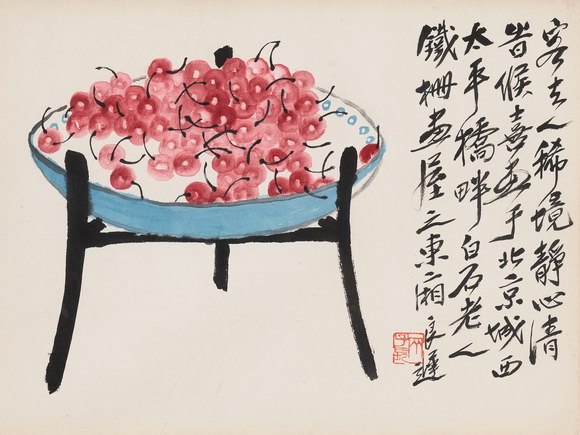 客去人稀境靜心清
昔候喜畫于北京城西
太平橋畔白石老人
鐵柵畫屋之東廂良遲